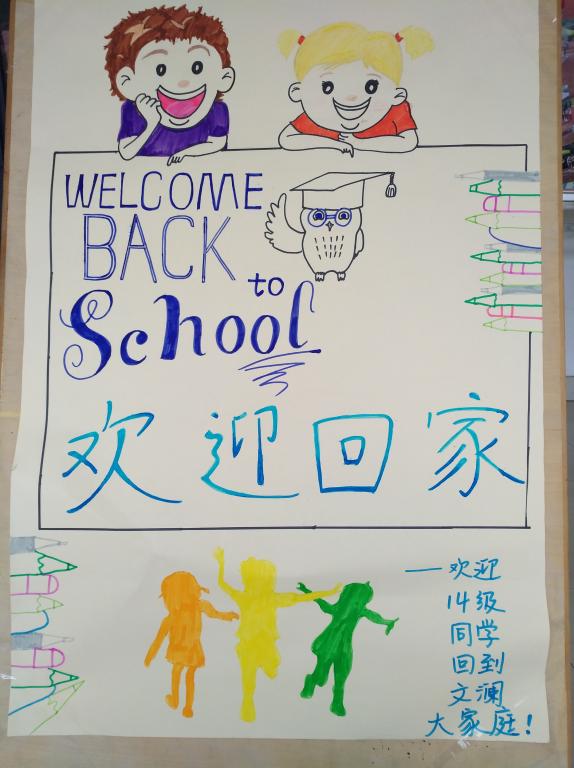 WELCOME
BACK
to
School
欢迎回家
一欢迎
14级
同学
回到
文澜
大家庭!